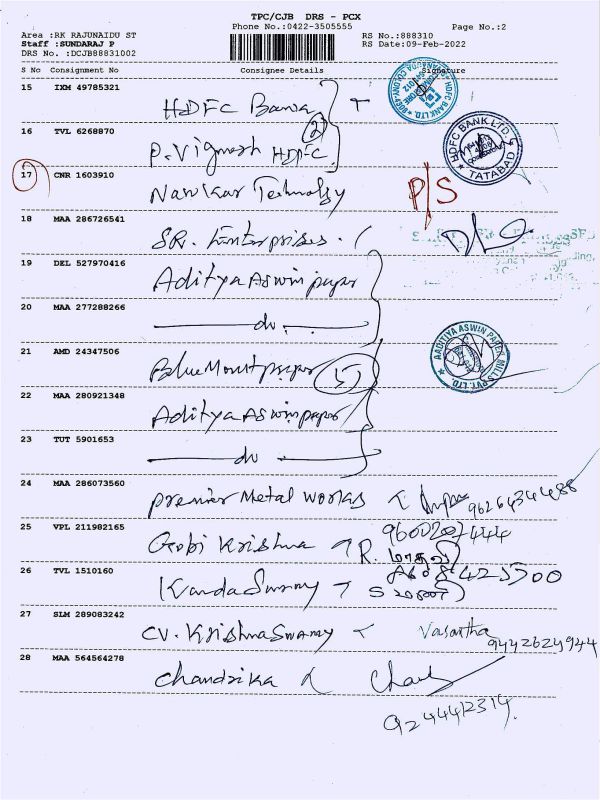 TPC/CJB DRS - PCX
Phone No.:0422-3505555 Page No.:2
Area :RK RAJUNAIDU ST RS No.:888310
Staff :SUNDARAJ P RS Date:09-Feb-2022
DRS No. :DCJB88831002
S No Consignment No Consignee Details Signature
15 IXM 49785321
HDFC Bank
HDFC BANK LTD
16 TVL 6268870
P. Vignesh HDFC (2)
HDFC BANK LTD. TATABAD
17 CNR 1603910
Technology P/S
18 MAA 286726541
SR. Enterprises.
19 DEL 527970416
Aditya Aswin paper
20 MAA 277288266
do
21 AMD 24347506
Blue Mount paper (5)
AADITYA ASWIN PAPER MILLS PVT. LTD
22 MAA 280921348
Aditya Aswin paper
23 TUT 5901653
do
24 MAA 286073560
Premier Metal Works
25 VPL 211982165
9600207444
Gobi Krishna R.
26 TVL 1510160
Kanda Swamy
27 SLM 289083242
CV. Krishna Swamy Vasantha
9442624944
28 MAA 564564278
Chandrika